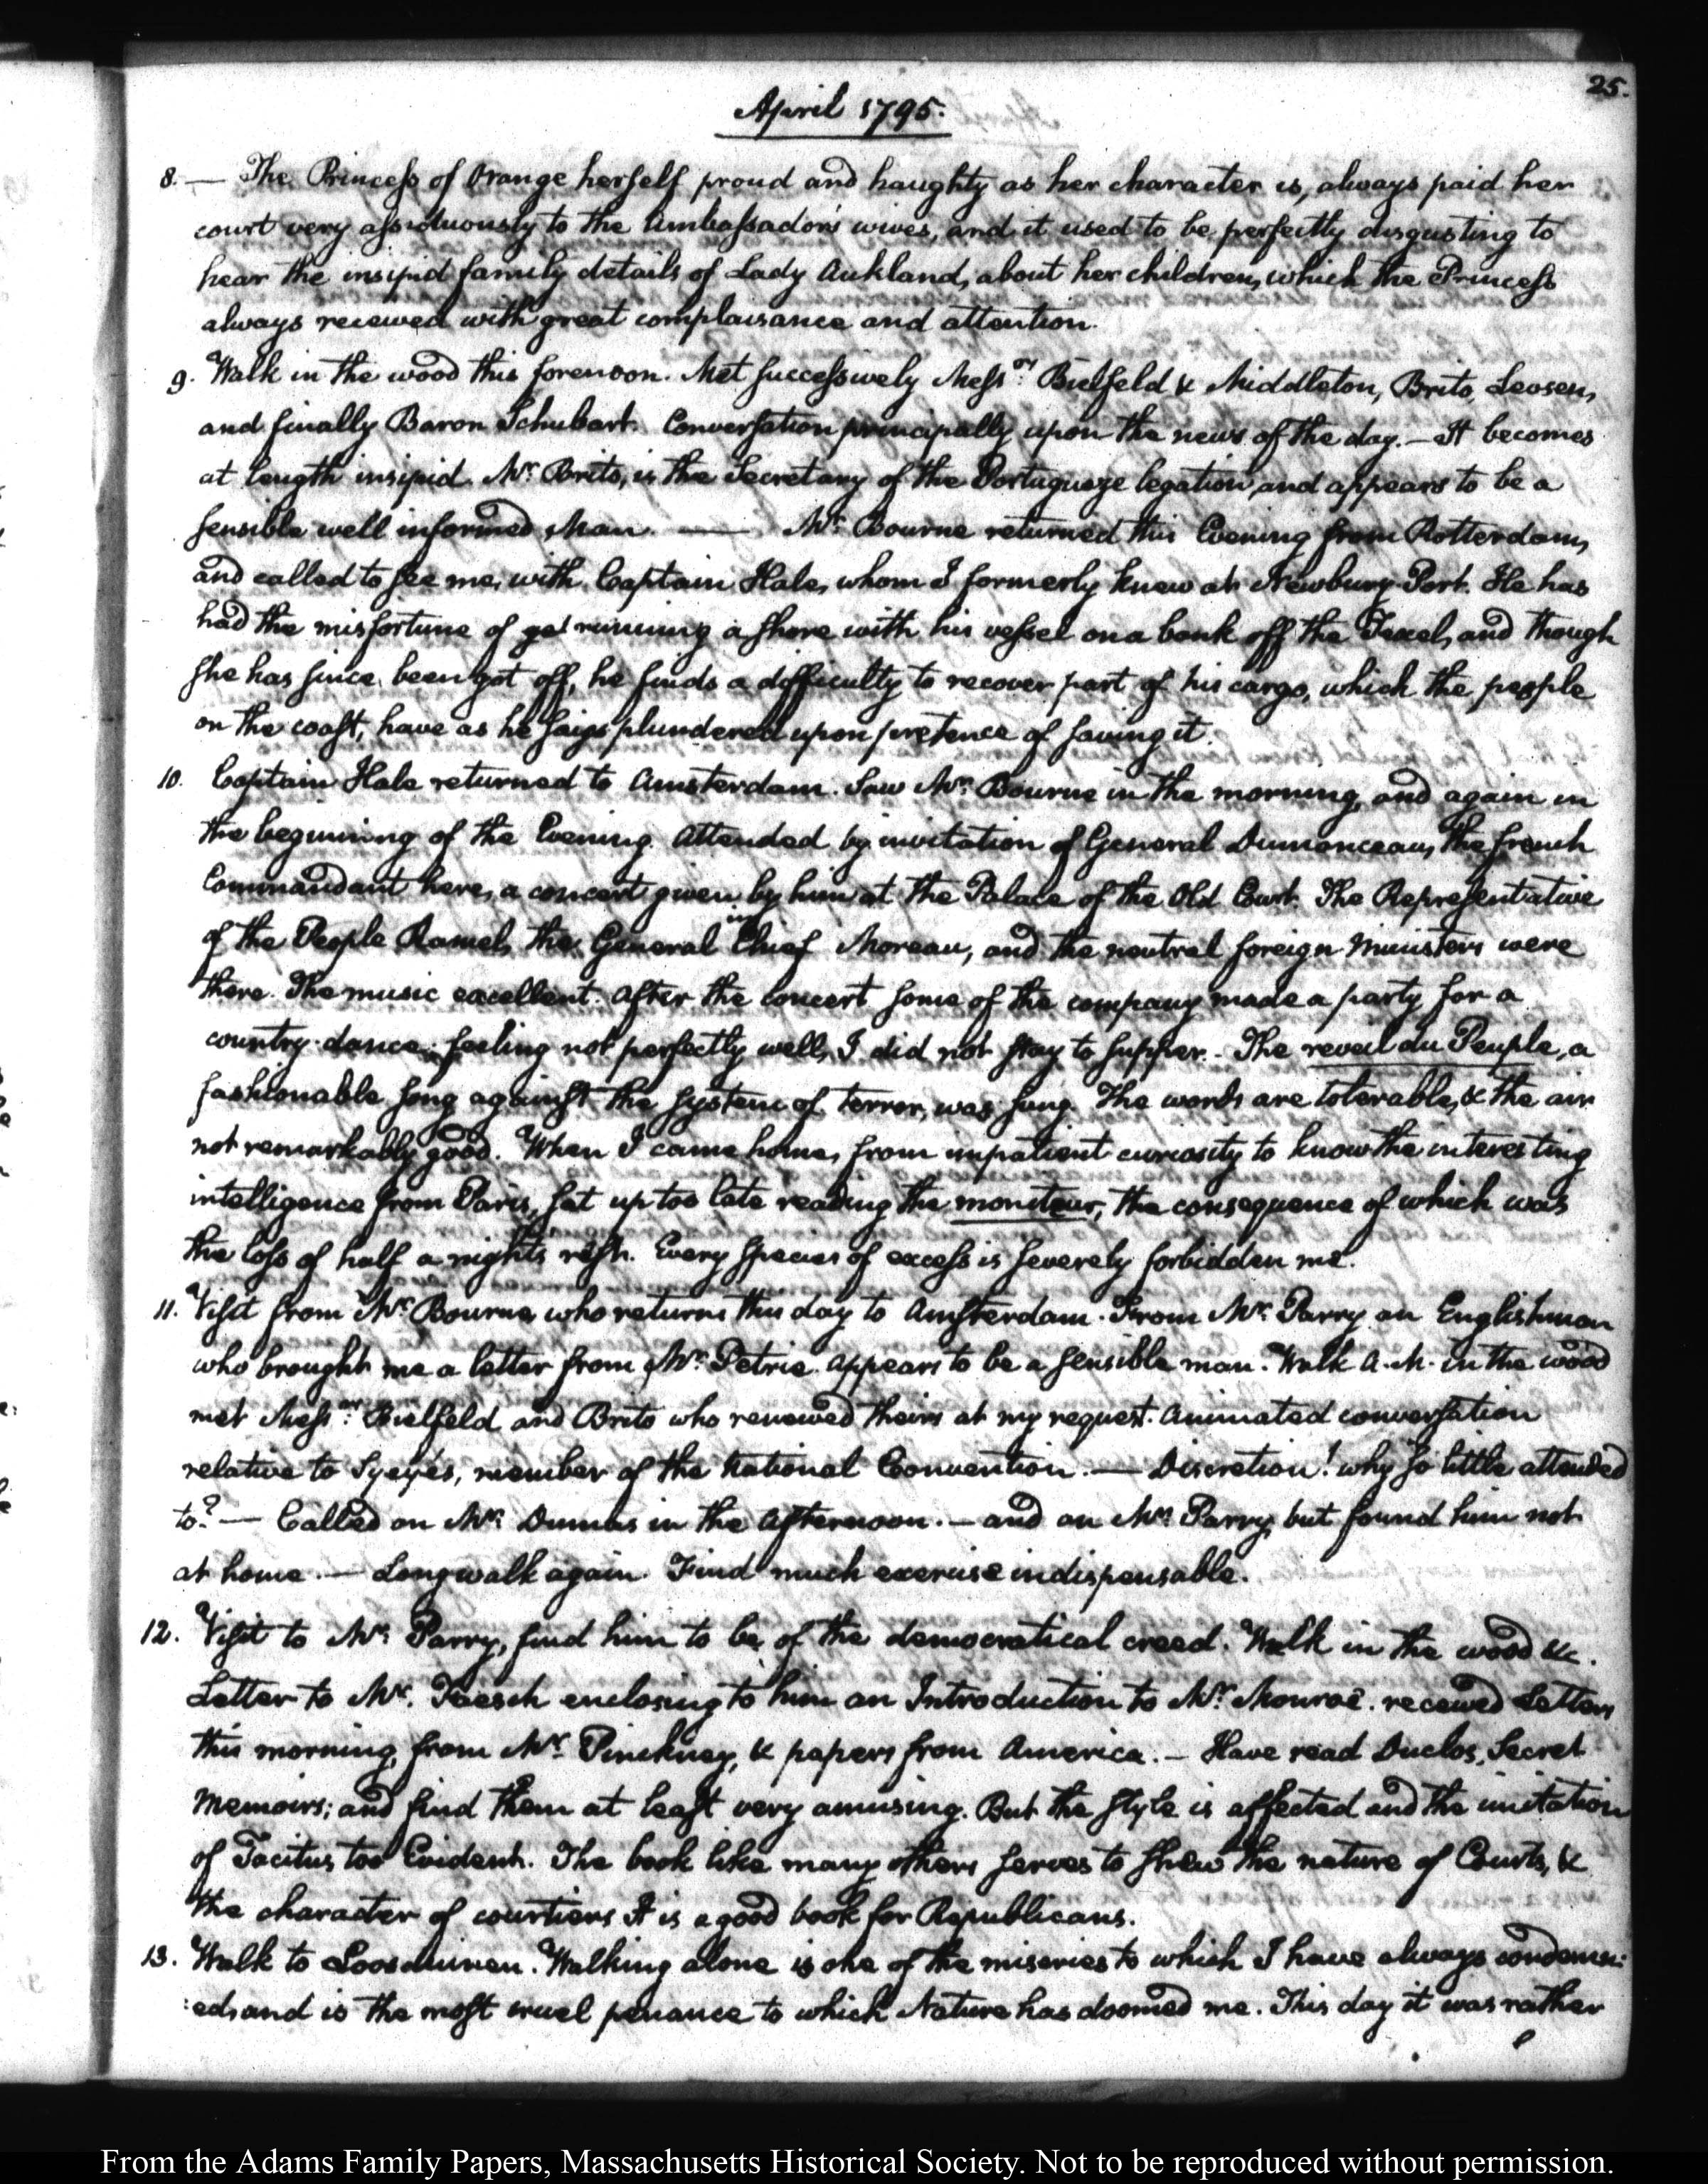 25.
April 1795.
8. — The Princess of Orange herself proud and haughty as her character is, always paid her
court very assiduously to the Ambassadors' wives, and it used to be perfectly disgusting to
hear the insipid family details of Lady Aukland, about her children, which the Princess
always received with great complaisance and attention.
9. Walk in the wood this forenoon. Met successively Messrs: Bielfeld & Middleton, Brito, Levsen,
and finally Baron Schubart. Conversation principally upon the news of the day. — It becomes
at length insipid. Mr: Brito, is the Secretary of the Portugueze legation, and appears to be a
sensible well informed Man. — Mr: Bourne returned this Evening from Rotterdam,
and called to see me, with Captain Hale, whom I formerly knew at Newbury-Port. He has
had the misfortune of get running a shore with his vessel on a bank off the Texel, and though
she has since been got off, he finds a difficulty to recover part of his cargo, which the people
on the coast, have as he says plundered upon pretence of saving it.
10. Captain Hale returned to Amsterdam. Saw Mr: Bourne in the morning, and again in
the beginning of the Evening. Attended by invitation of General Dumonceau, the french
Commandant here, a concert given by him at the Palace of the Old Court. The Representative
of the People Ramel, the General in Chief Moreau, and the neutral foreign Ministers were
there. The music excellent. After the Concert some of the company made a party for a
country-dance; feeling not perfectly well, I did not stay to supper. - The reveil du Peuple, a
fashionable song against the system of terror, was sung. The words are tolerable, & the air
not remarkably good. When I came home, from impatient curiosity to know the interesting
intelligence from Paris, sat up too late reading the moniteur, the consequence of which was
the loss of half a night's rest. Every species of excess is severely forbidden me.
11. Visit from Mr: Bourne, who returns this day to Amsterdam. From Mr: Parry an Englishman
who brought me a letter from Mr: Petrie. appears to be a sensible man. Walk A.M. in the wood
met Messrs: Bielfeld and Brito who renewed theirs at my request. Animated conversation
relative to Syeyès, member of the National Convention. — Discretion! why so little attended
to? — Called on Mr: Dumas in the Afternoon. — and on Mr: Parry, but found him not
at home. — Long walk again. Find much exercise indispensable.
12. Visit to Mr: Parry, find him to be of the democratical creed. Walk in the wood &c.
Letter to Mr. Faesch enclosing to him an Introduction to Mr: Monroe. received Letters
this morning, from Mr: Pinckney, & papers from America. — Have read Duclos, Secret
Memoirs; and find them at least very amusing. But the style is affected and the imitation
of Tacitus too Evident. The book like many others serves to shew the nature of Courts, &
the character of courtiers. It is a good book for Republicans.
13. Walk to Loosduinen. Walking alone is one of the miseries to which I have always condemn:
:ed, and is the most cruel penance to which Nature has doomed me. This day it was rather
From the Adams Family Papers, Massachusetts Historical Society. Not to be reproduced without permission.